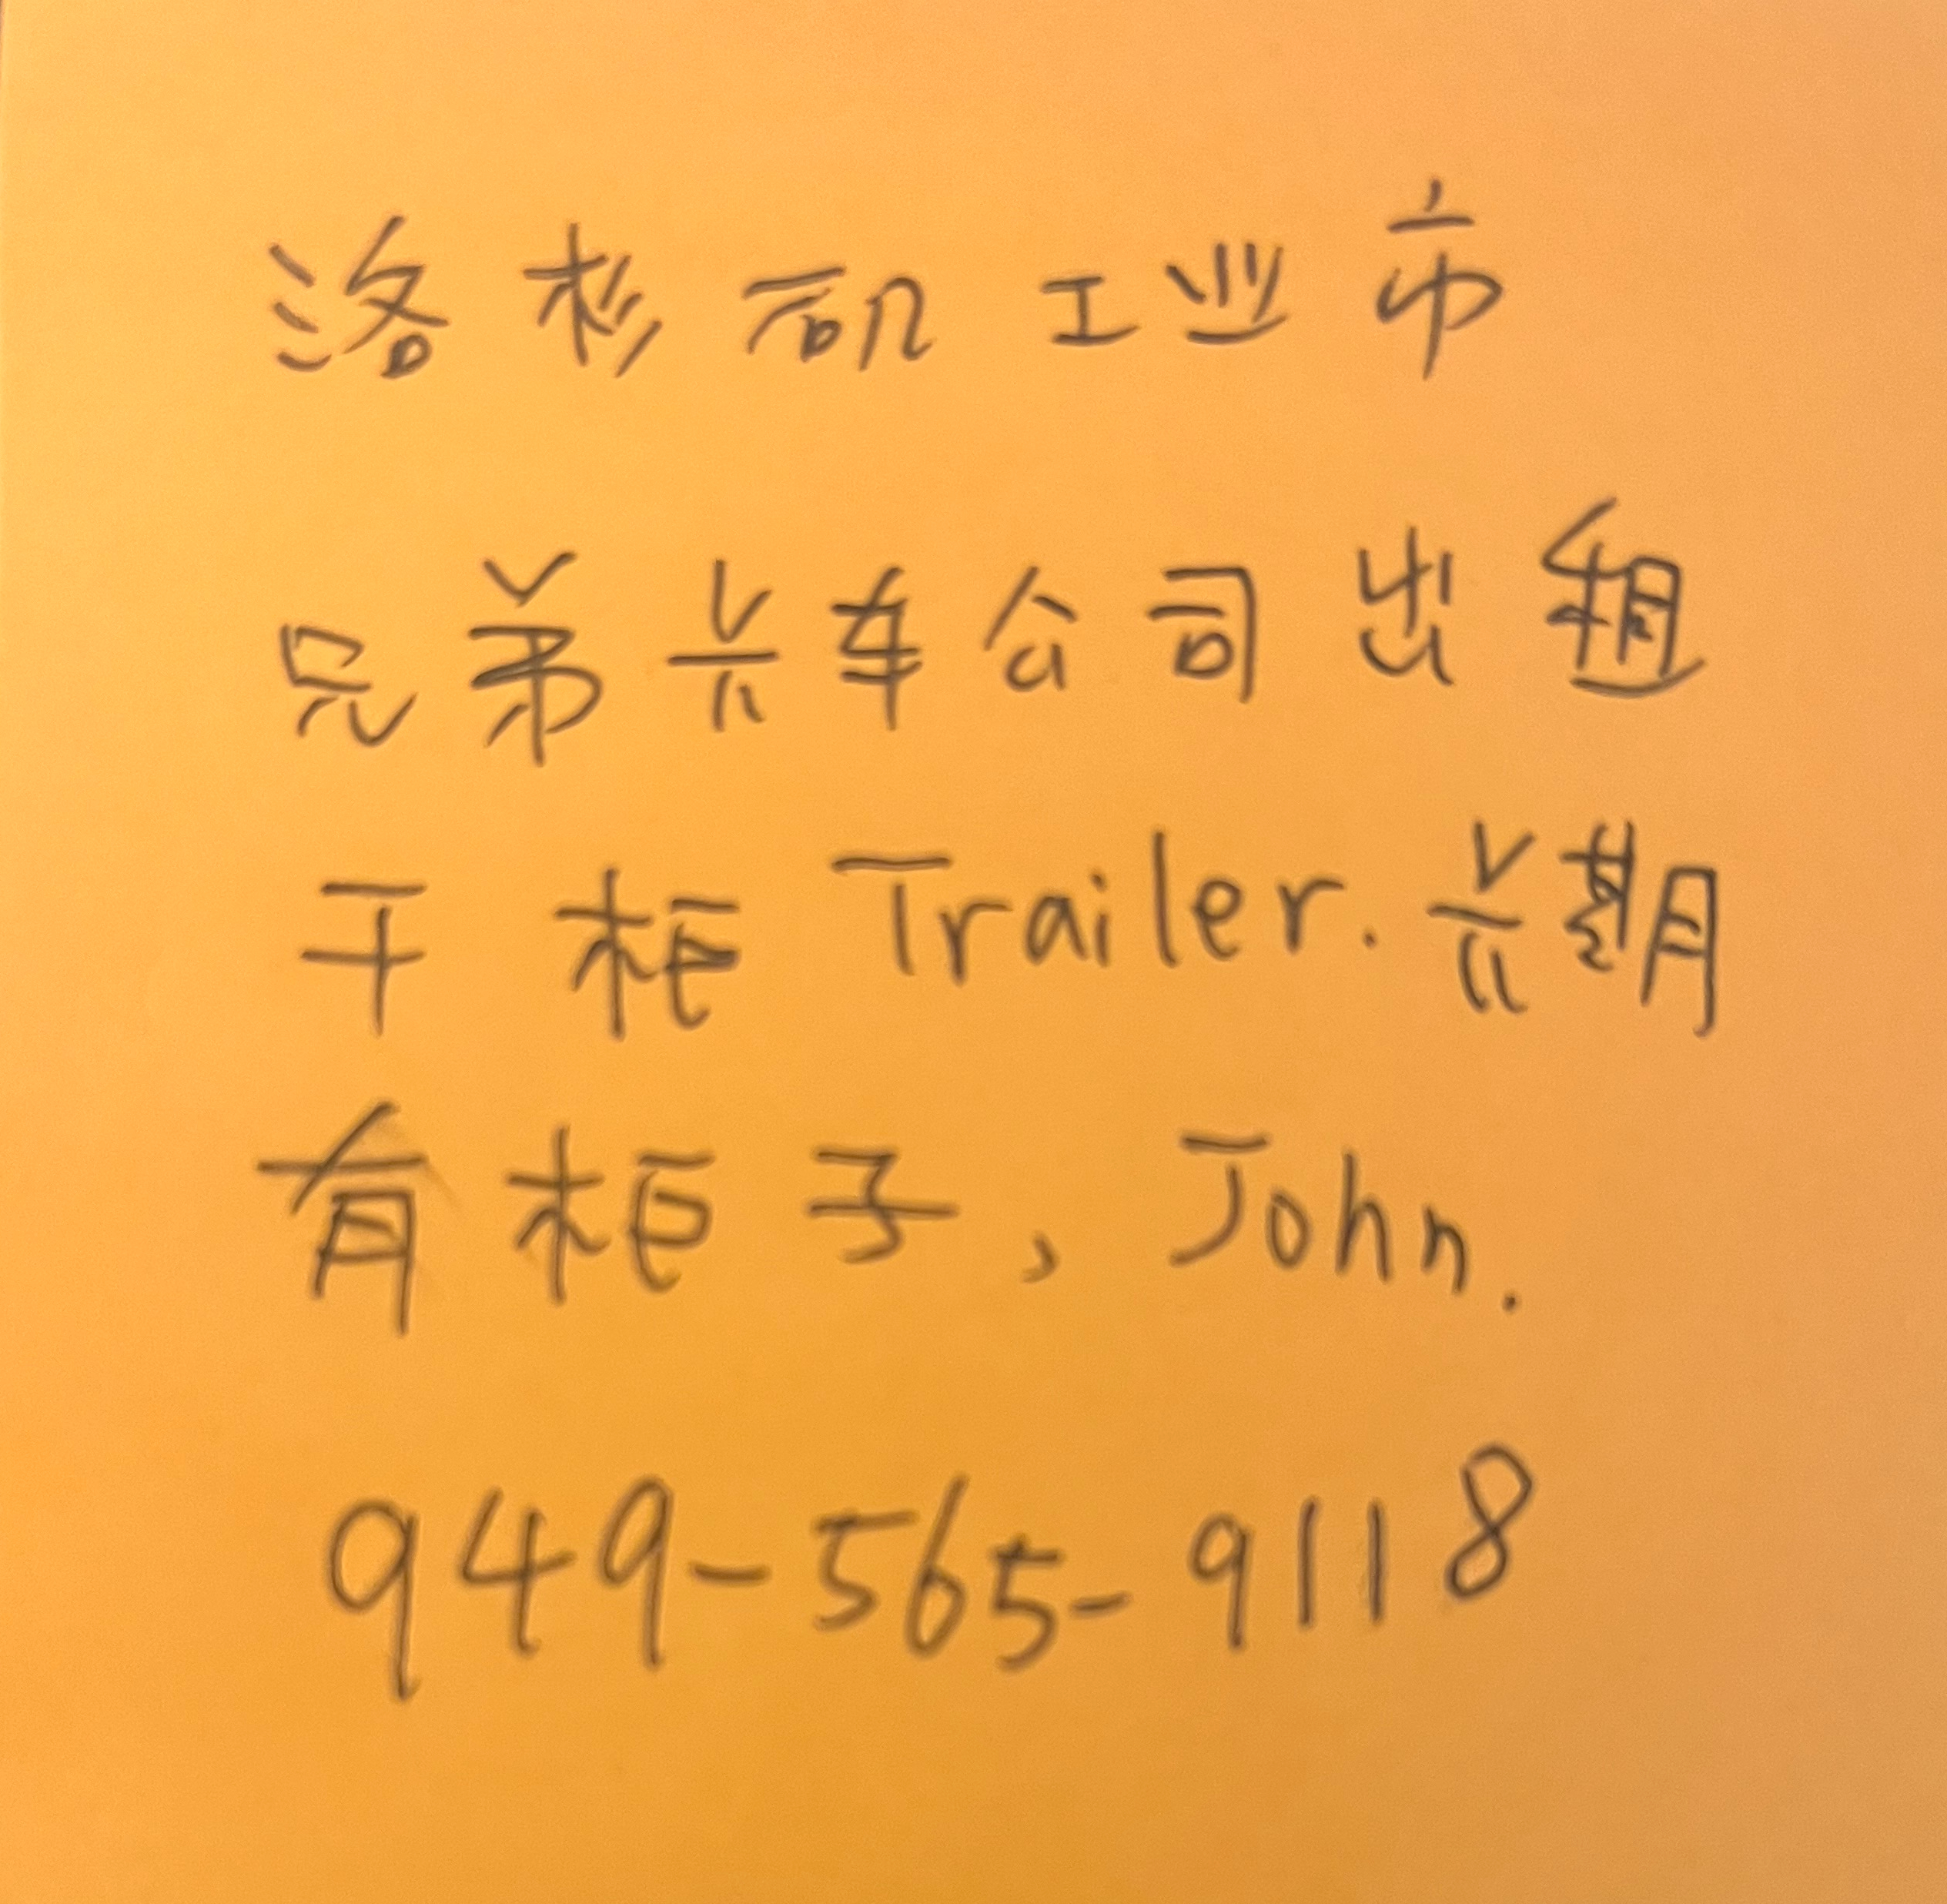 洛杉矶工业市
兄弟卡车公司出租
干柜 Trailer. 长期
有柜子, John.
949-565-9118